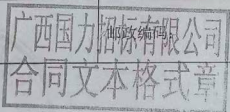 广西国力招标有限公司
邮政编码:
合同文本格式章